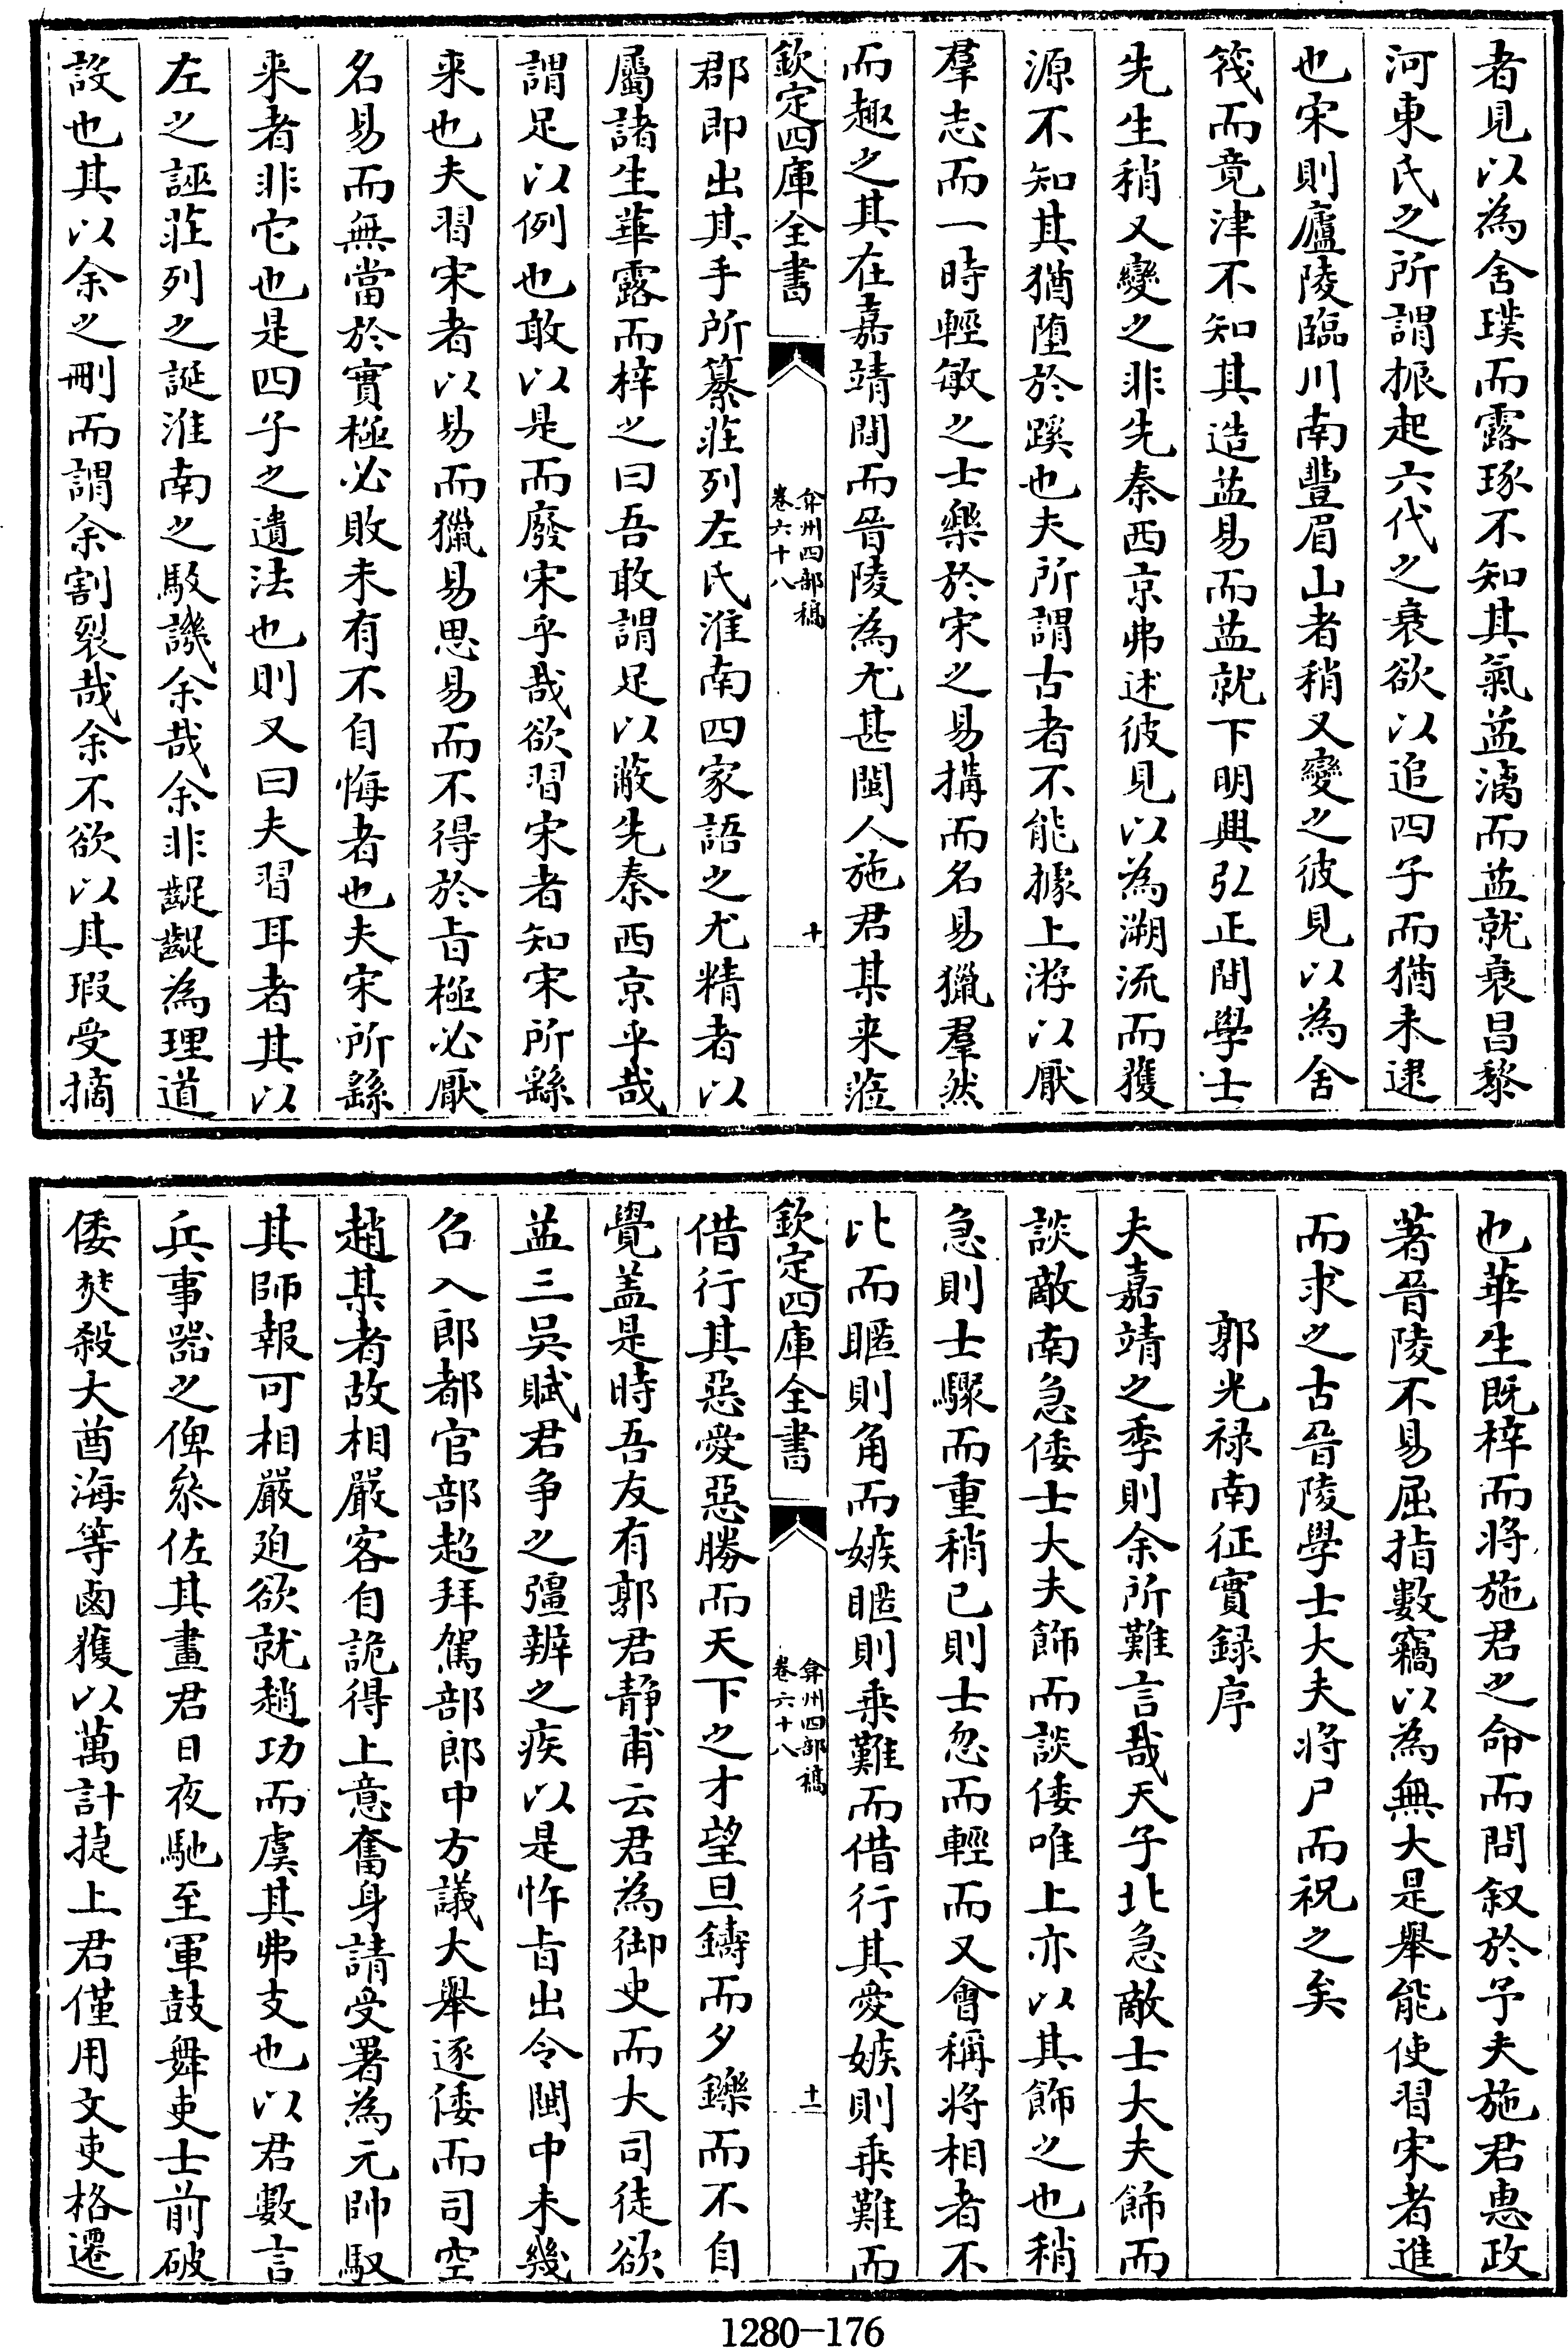 者見以為舍璞而露琢不知其氣益漓而益就衰昌黎
河東氏之所謂振起六代之衰欲以追四子而猶未逮
也宋則廬陵臨川南豐眉山者稍又變之彼見以為舍
筏而竟津不知其造益易而益就下明興弘正間學士
先生稍又變之非先秦西京弗述彼見以為溯流而獲
源不知其猶墮於蹊也夫所謂古者不能據上游以厭
羣志而一時輕敏之士樂於宋之易搆而名易獵羣然
而趣之其在嘉靖間而晉陵為尤甚閩人施君某来蒞
欽定四庫全書
弇州四部稿
卷六十八
十
郡即出其手所纂莊列左氏淮南四家語之尤精者以
屬諸生華露而梓之曰吾敢謂足以蔽先秦西京乎哉
謂足以例也敢以是而廢宋乎哉欲習宋者知宋所繇
来也夫習宋者以易而獵易思易而不得於㫖極必厭
名易而無當於實極必敗未有不自悔者也夫宋所繇
来者非它也是四子之遺法也則又曰夫習耳者其以
左之誣莊列之誕淮南之駁譏余哉余非齪齪為理道
設也其以余之刪而謂余割裂哉余不欲以其瑕受摘
也華生既梓而将施君之命而問叙於予夫施君惠政
著晉陵不易屈指數竊以為無大是舉能使習宋者進
而求之古晉陵學士大夫将尸而祝之矣
郭光禄南征實録序
夫嘉靖之季則余所難言哉天子北急敵士大夫飾而
談敵南急倭士大夫飾而談倭唯上亦以其飾之也稍
急則士驟而重稍已則士忽而輕而又會稱将相者不
比而暱則角而嫉暱則乘難而借行其愛嫉則乘難而
欽定四庫全書
弇州四部稿
卷六十八
十一
借行其惡愛惡勝而天下之才望旦鑄而夕鑠而不自
覺盖是時吾友有郭君靜甫云君為御史而大司徒欲
益三吳賦君争之彊辨之疾以是忤㫖出令閩中未幾
召入郎都官部超拜駕部郎中方議大舉逐倭而司空
趙某者故相嚴客自詭得上意奮身請受署為元帥馭
其師報可相嚴廹欲就趙功而虞其弗支也以君數言
兵事器之俾叅佐其畫君日夜馳至軍鼓舞吏士前破
倭焚殺大酋海等鹵獲以萬計捷上君僅用文吏格遷
1280-176